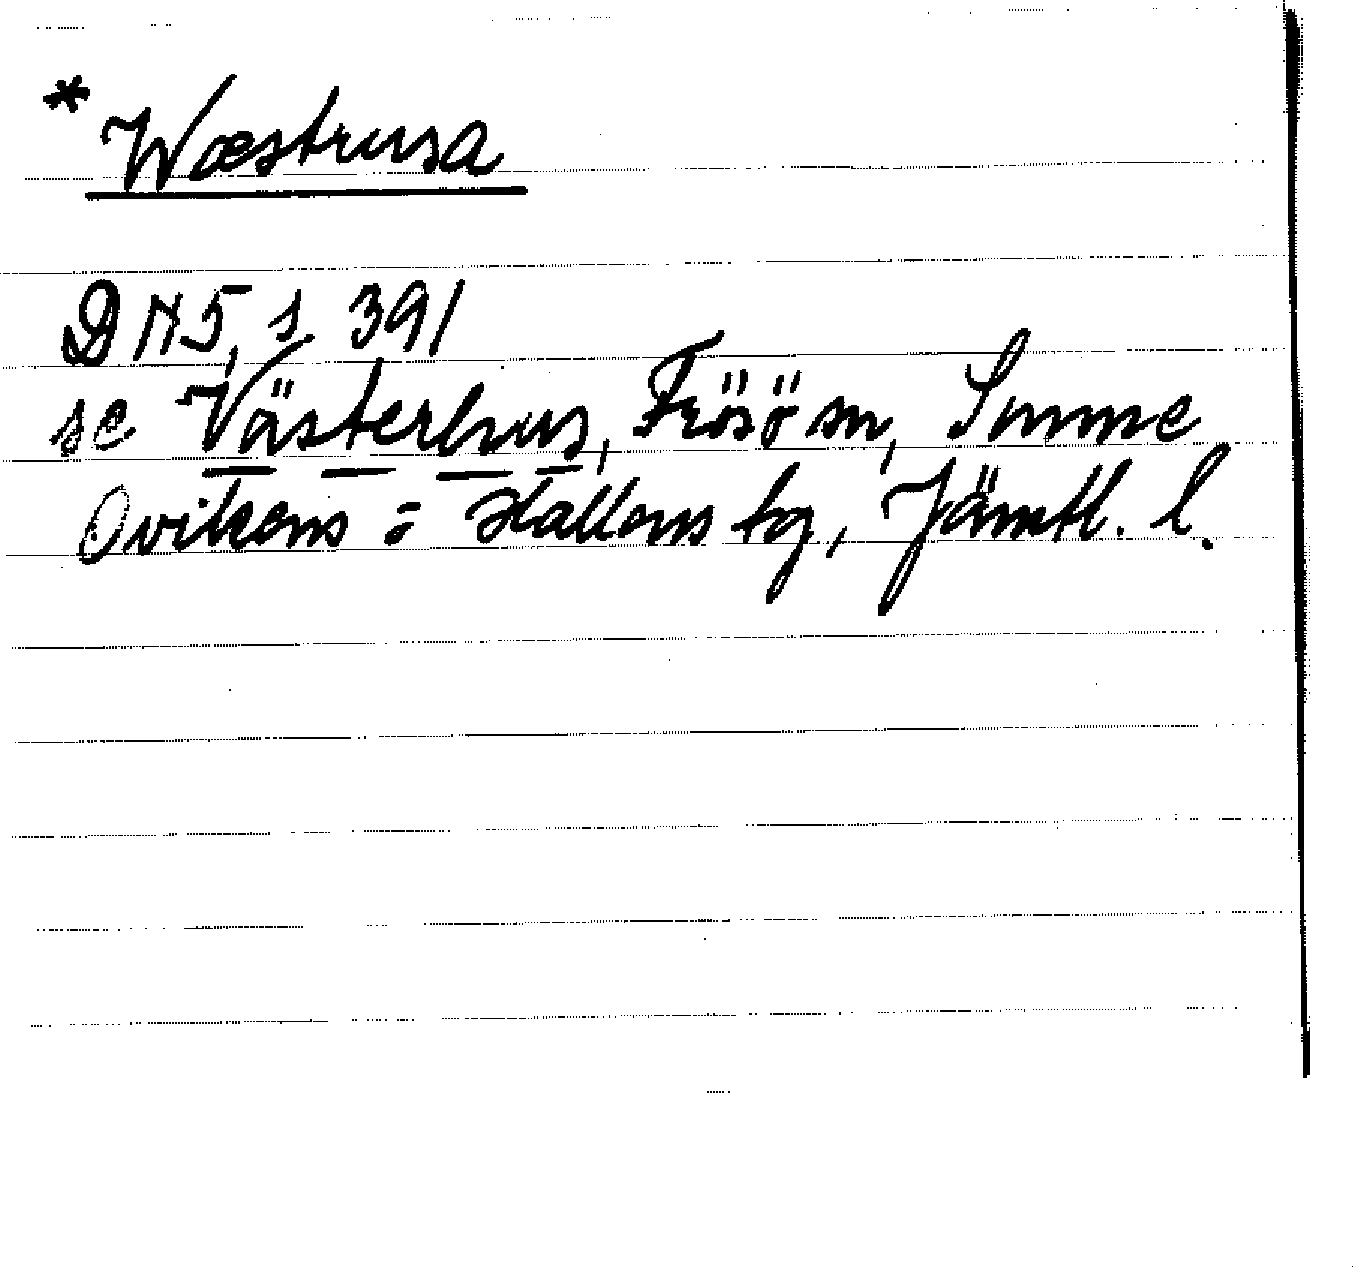 * Wæstrusa
DN5, s. 391
se Västerhus, Frösö sn, Sunne
Ovikens o Hallens tg, Jämtl. l.